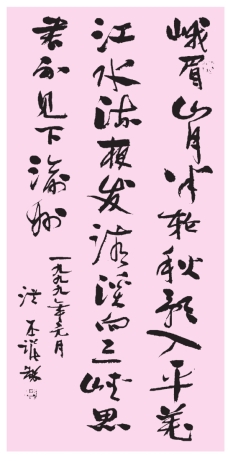 峨眉山月半轮秋影入平羌
江水流夜发清溪向三峡思
君不见下渝州
一九九九年元月
洪丕谟